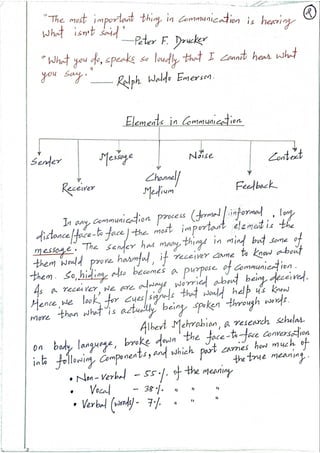 ②
"The most important thing in communication is hearing
what isn't said"
— Peter F. Drucker
"What you do, speaks so loudly that I cannot hear what
you say."
— Ralph Waldo Emerson.
Elements in Communication
Sender Message Noise Context
Receiver Channel/ Medium Feedback
In any communication process (formal/informal, long
distance/face-to face) the most important element is the
message. The sender has many things in mind but some of
them would prove harmful, if receiver came to know about
them. So, hiding also becomes a purpose of communication.
As a receiver, we are always worried about being deceived.
Hence, we look for cues/signals that would help us know
more than what is actually being spoken through words.
Albert Mehrabian, a research scholar
on body language, broke down the face-to-face conversation
into following components, and which part carries how much of
the true meaning.
• Non-verbal - 55%. of the meaning
• Vocal - 38%. " " "
• Verbal (words) - 7%. " " "